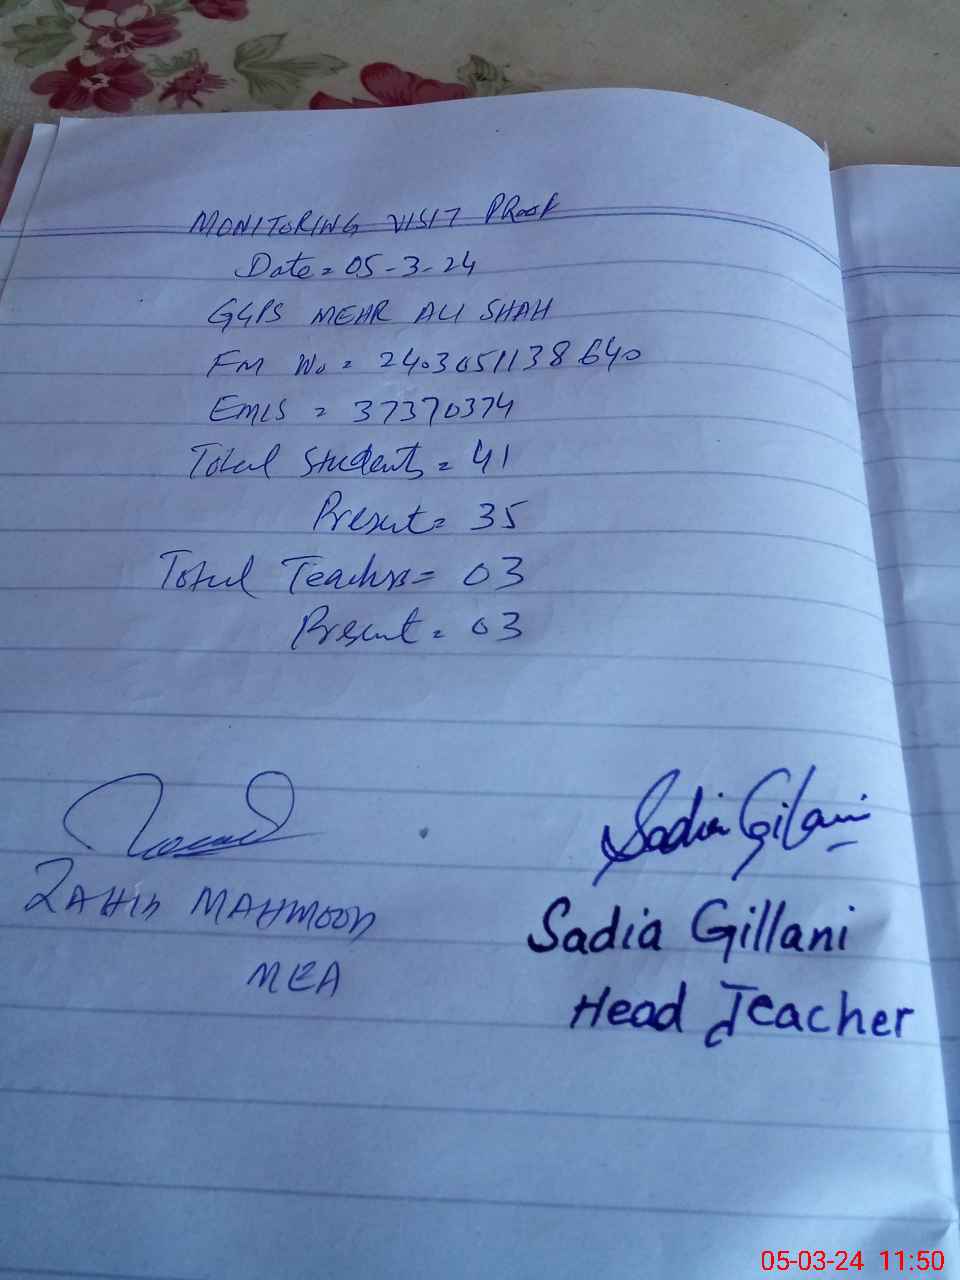 MONITORING VISIT PROOF
Date = 05-3-24
GGPS MEHR ALI SHAH
FM No = 2403051138640
EMIS = 37370374
Total Students = 41
Present = 35
Total Teachers = 03
Present = 03
Sadia Gilani
ZAHID MAHMOOD
Sadia Gillani
MEA
Head Teacher
05-03-24 11:50